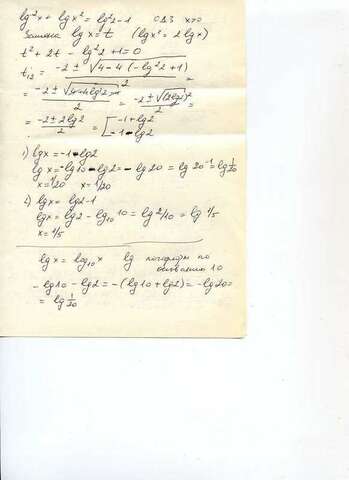 lg²x + lgx² = lg²2-1 ОДЗ x>0
Замена lgx=t (lgx²=2lgx)
t²+2t-lg²2+1=0
t₁₂= -2±√4-4(-lg²2+1) / 2 =
= -2±√4+4lg²2-4 / 2 = -2±√(2lg2)² / 2 =
= -2±2lg2 / 2 = [ -1+lg2
-1-lg2
1) lgx=-1-lg2
lgx=-lg10-lg2=-lg20=lg20⁻¹=lg 1/20
x=1/20 x=1/20
2) lgx=lg2-1
lgx=lg2-lg₁₀10=lg 2/10=lg 1/5
x=1/5
lgx=log₁₀x lg логарифм по
основанию 10
-lg10-lg2=-(lg10+lg2)=-lg20=
=lg 1/20